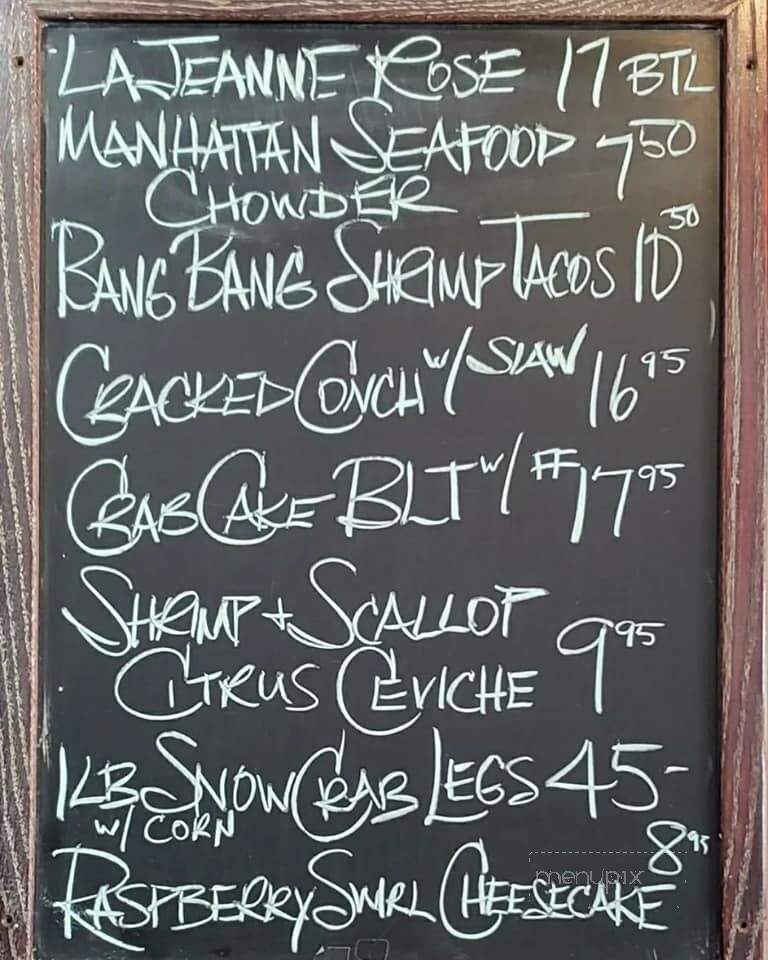 LAJEANNE ROSE 17 BTL
MANHATTAN SEAFOOD 7 50
CHOWDER
BANG BANG SHRIMP TACOS 10 50
CRACKED CONCH W/ SLAW 16 95
CRAB CAKE BLT W/ FF 17 95
SHRIMP + SCALLOP
CITRUS CEVICHE 9 95
1LB SNOW CRAB LEGS 45-
W/ CORN
8 95
RASPBERRY SWIRL CHEESECAKE
menupix